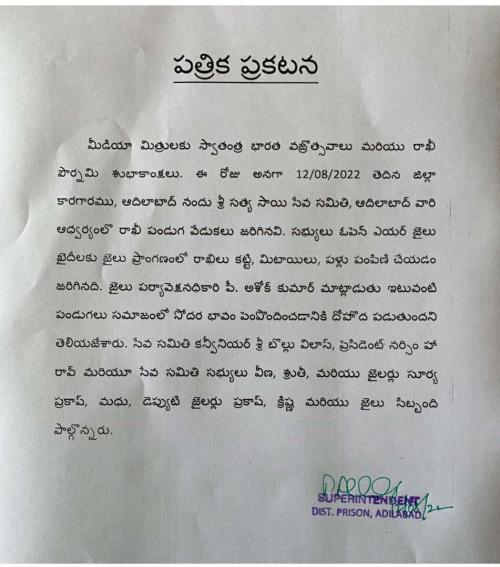 పత్రిక ప్రకటన
మీడియా మిత్రులకు స్వాతంత్ర భారత వజ్రోత్సవాలు మరియు రాఖీ
పౌర్నమి శుభాకాంక్షలు. ఈ రోజు అనగా 12/08/2022 తెదిన జిల్లా
కారగారము, ఆదిలాబాద్ నందు శ్రీ సత్య సాయి సేవ సమితి, ఆదిలాబాద్ వారి
ఆధ్వర్యంలొ రాఖీ పండుగ వేడుకలు జరిగినవి. సభ్యులు ఓపెన్ ఎయర్ జైలు
ఖైదీలకు జైలు ప్రాంగణంలో రాఖిలు కట్టి, మిటాయిలు, పళ్లు పంపిణి చేయడం
జరిగినది. జైలు పర్యావెక్షనధికారి పి. అశోక్ కుమార్ మాట్లాడుతు ఇటువంటి
పండుగలు సమాజంలో సోదర భావం పెంపొందించడానికి దోహొద పడుతుందని
తెలియజేశారు. సేవ సమితి కన్వీనియర్ శ్రీ బొల్లు విలాస్, ప్రెసిడెంట్ నర్సిం హా
రావ్ మరియూ సేవ సమితి సభ్యులు వీణ, శ్రుతీ, మరియు జైలర్లు సూర్య
ప్రకాష్, మధు, డెప్యుటి జైలర్లు ప్రకాష్, క్రిష్ణ మరియు జైలు సిబ్బంది
పాల్గొన్నరు.
SUPERINTENDENT
DIST. PRISON, ADILABAD.